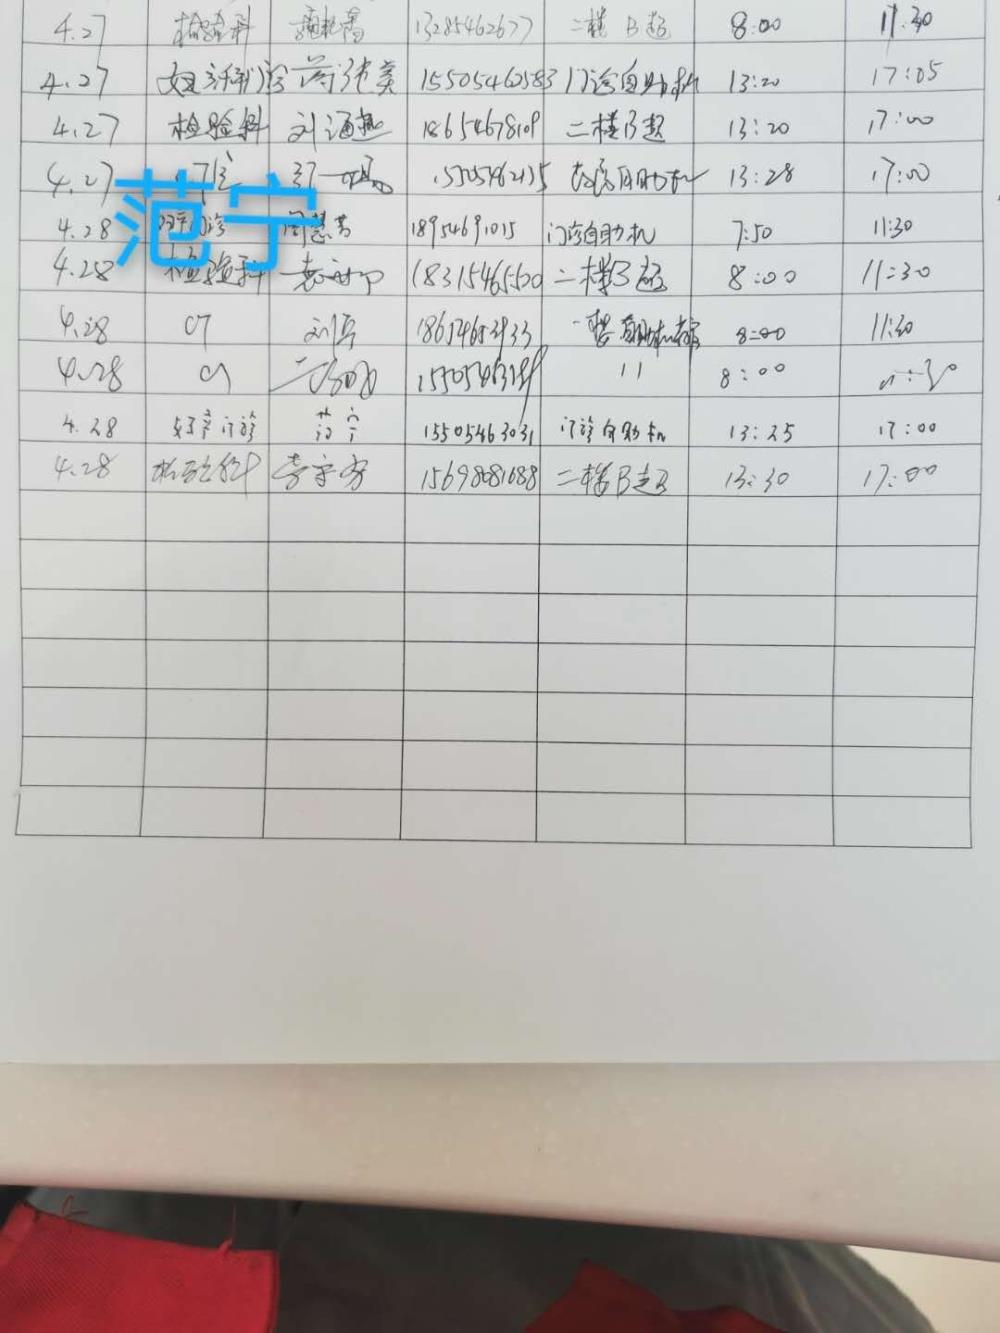 4.27 检验科 13285462677 二楼B超 8:00 11:30
4.27 门诊 15505462583 门诊自助机 13:20 17:05
4.27 检验科 刘海燕 18654678109 二楼B超 13:20 17:00
4.27 自助机 13:28 17:00
范宁
4.28 门诊 周慧芳 18954691015 门诊自助机 7:50 11:30
4.28 检验科 18315465500 二楼B超 8:00 11:30
4.28 CT 刘兵 18654653933 8:00 11:30
4.28 CT 11 8:00 11:30
4.28 妇产门诊 范宁 15505463031 门诊自助机 13:25 17:00
4.28 检验科 15698081088 二楼B超 13:30 17:00